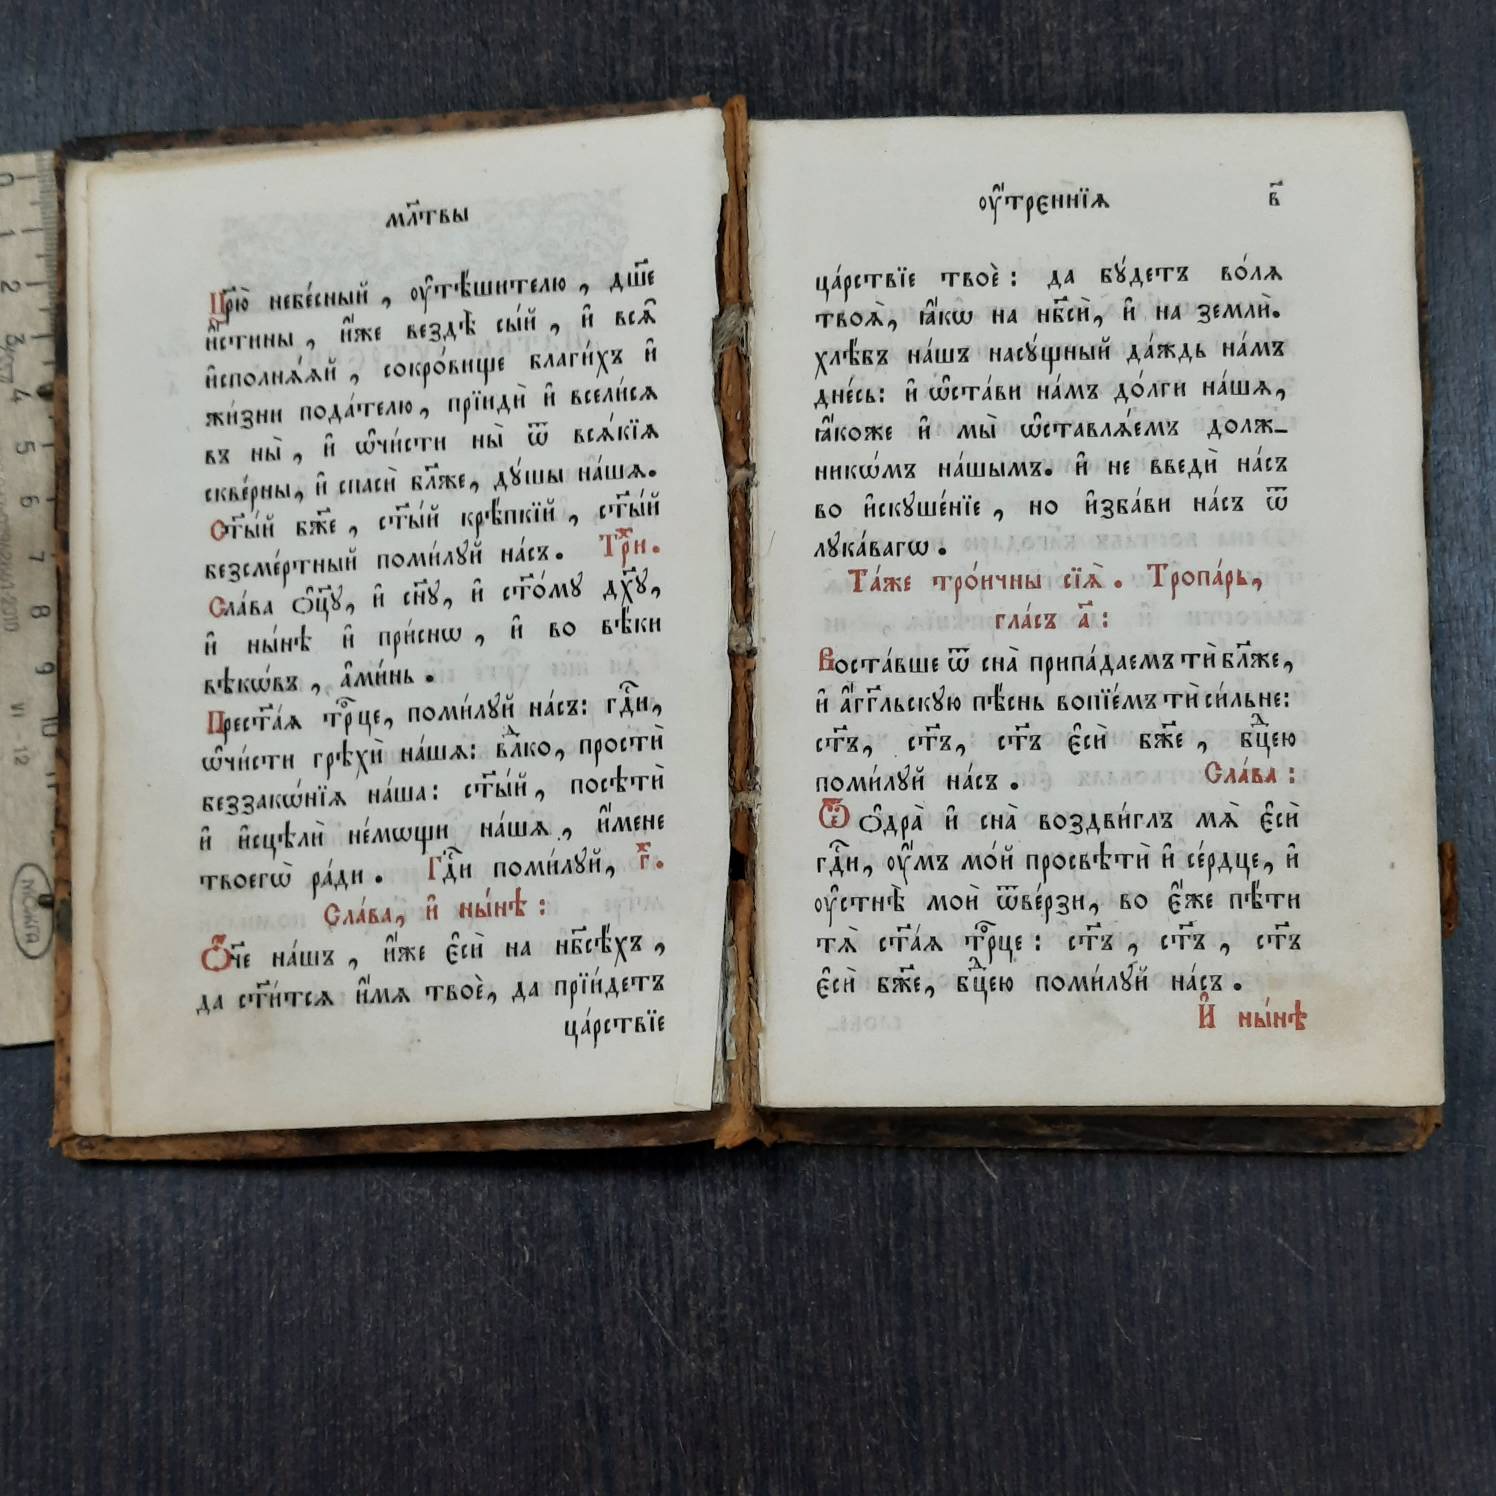 мл҃твы
Цр҃ю̀ небе́сный, ᲂу҆тѣ́шителю, дш҃е
и҆́стины, и҆́же вездѣ̀ сы́й, и҆ всѧ̑
и҆сполнѧ́ѧй, сокро́вище благи́хъ и҆
жи́зни пода́телю, прїидѝ и҆ всели́сѧ
въ ны̀, и҆ ѡ҆чи́сти ны̀ ѿ всѧ́кїѧ
скве́рны, и҆ спасѝ бл҃же, дꙋ́шы на́шѧ.
Ст҃ы́й бж҃е, ст҃ы́й крѣ́пкїй, ст҃ы́й
безсме́ртный поми́лꙋй на́съ. Три.
Сла́ва ѻ҆ц҃ꙋ̀, и҆ сн҃ꙋ, и҆ ст҃о́мꙋ дх҃ꙋ,
и҆ ны́нѣ и҆ при́снѡ, и҆ во вѣ́ки
вѣкѡ́въ, а҆ми́нь.
Прест҃а́ѧ трⷪ҇це, поми́лꙋй на́съ: гдⷭ҇и,
ѡ҆чи́сти грѣхѝ на́шѧ: влⷣко, простѝ
беззакѡ́нїѧ на́ша: ст҃ы́й, посѣтѝ
и҆ и҆сцѣлѝ не́мѡщи на́шѧ, и҆́мене
твоегѡ̀ ра́ди. Гдⷭ҇и поми́лꙋй, г҃.
Сла́ва, и҆ ны́нѣ:
Ѻ҆́ч҃е на́шъ, и҆́же є҆сѝ на нб҃сѣ́хъ,
да ст҃и́тсѧ и҆́мѧ твоѐ, да прїи́детъ
ца́рствїе
ᲂу҆́тренїѧ в҃
ца́рствїе твоѐ: да бꙋ́детъ во́лѧ
твоѧ̀, ꙗ҆́кѡ на нб҃сѝ, и҆ на землѝ.
хлѣ́бъ на́шъ насꙋ́щный да́ждь на́мъ
дне́сь: и҆ ѡ҆ста́ви на́мъ до́лги на́шѧ,
ꙗ҆́коже и҆ мы̀ ѡ҆ставлѧ́емъ долж-
никѡ́мъ на́шымъ. и҆ не введѝ на́съ
во и҆скꙋше́нїе, но и҆зба́ви на́съ ѿ
лꙋка́вагѡ.
Та́же трⷪ҇ичны сїѧ̀. Тропа́рь,
гла́съ а҃:
Воста́вше ѿ сна̀ припа́даемъ тѝ бл҃же,
и҆ а҆́гг҃льскꙋю пѣ́снь вопїе́мъ тѝ си́льне:
ст҃ъ, ст҃ъ, ст҃ъ є҆сѝ бж҃е, бцⷣею
поми́лꙋй на́съ. Сла́ва:
Ѿ ѻ҆дра̀ и҆ сна̀ воздви́глъ мѧ̀ є҆сѝ
гдⷭ҇и, ᲂу҆́мъ мо́й просвѣтѝ и҆ се́рдце, и҆
ᲂу҆стнѣ̀ моѝ ѿве́рзи, во є҆́же пѣ́ти
тѧ̀ ст҃а́ѧ трⷪ҇це: ст҃ъ, ст҃ъ, ст҃ъ
є҆сѝ бж҃е, бцⷣею поми́лꙋй на́съ.
И҆ ны́нѣ